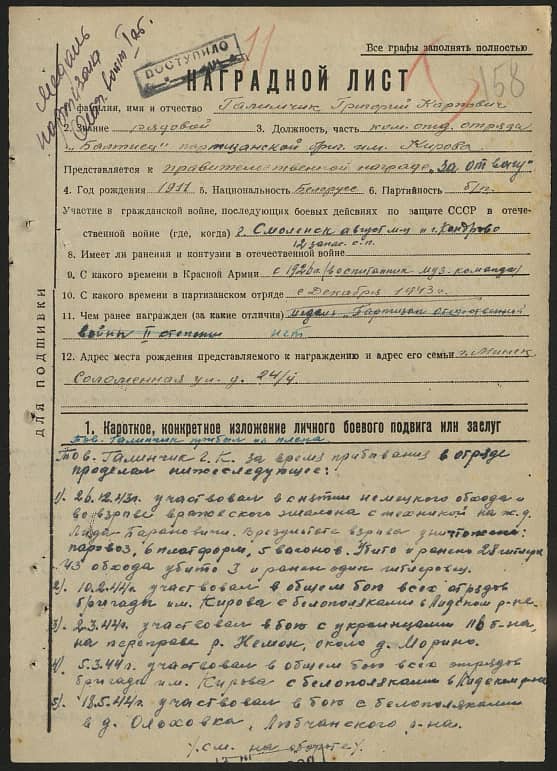 Медаль
партизана
Отеч. войны I ст.
ПОСТУПИЛО
11
158
Все графы заполнять полностью
НАГРАДНОЙ ЛИСТ
фамилия, имя и отчество Галимчик Григорий Карпович
2. Звание рядовой 3. Должность, часть ком. отд. отряда
„Балтиец" партизанской бриг. им. Кирова
Представляется к правительственной награде „За отвагу"
4. Год рождения 1911 5. Национальность Белорус 6. Партийность б/п
Участие в гражданской войне, последующих боевых действиях по защите СССР в отече-
ственной войне (где, когда) г. Смоленск август м-ц и г. Кондрово
12 запас. с.п.
8. Имеет ли ранения и контузии в отечественной войне
9. С какого времени в Красной Армии с 1926 г (воспитанник муз. команды)
10. С какого времени в партизанском отряде с Декабря 1943 г.
11. Чем ранее награжден (за какие отличия) медаль „Партизан отечественной
войны II степени нет
12. Адрес места рождения представляемого к награждению и адрес его семьи г. Минск
Соломенная ул. д. 24/4
ДЛЯ ПОДШИВКИ
1. Короткое, конкретное изложение личного боевого подвига или заслуг
Тов. Галимчик прибыл из плена.
Тов. Галимчик Г. К. за время прибывания в отряде
проделал нижеследующее:
1). 26.12.43г. участвовал в снятии немецкого обхода и
во взрыве вражеского эшелона с техникой на ж.д.
Лида Барановичи. В результате взрыва уничтожено:
паровоз, 6 платформ, 5 вагонов. Убито и ранено 28 гитлер.
Из обхода убито 3 и ранен один гитлеровец.
2). 10.2.44г. участвовал в общем бою всех отрядов
бригады им. Кирова с белополяками в Лидском р-не.
3). 2.3.44г. участвовал в бою с украинцами 116 б-на,
на переправе р. Немон, около д. Морино.
4). 5.3.44г. участвовал в общем бою всех отрядов
бригады им. Кирова с белополяками в Лидском р-не
5). 18.5.44г. участвовал в бою с белополяками
в д. Олховка, Любчанского р-на.
/см. на обороте/.